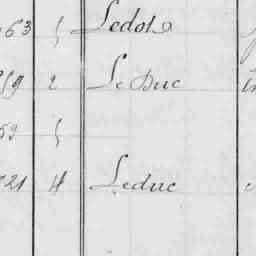 63 Ledot
59 2 Le Duc
59
21 4 Leduc